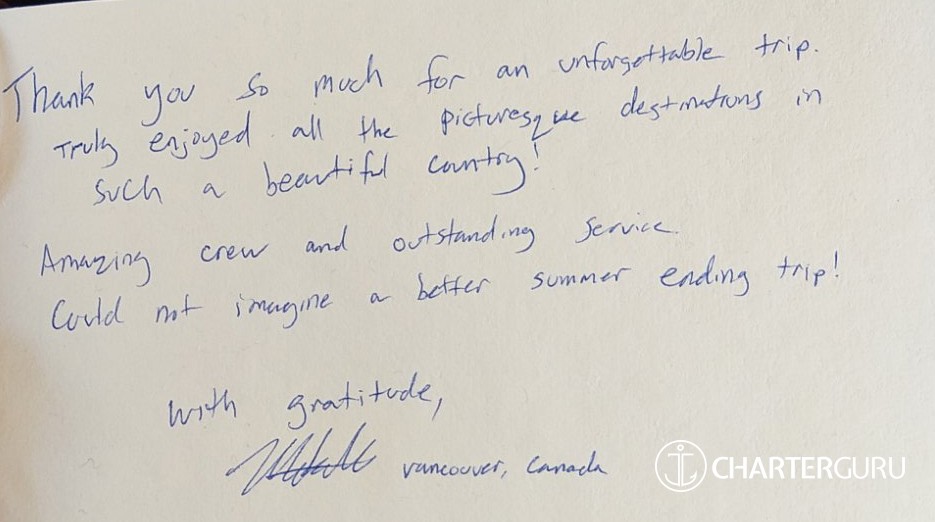 Thank you so much for an unforgettable trip.
Truly enjoyed all the picturesque destinations in
such a beautiful country!
Amazing crew and outstanding service.
Could not imagine a better summer ending trip!
with gratitude,
vancouver, Canada
CHARTERGURU